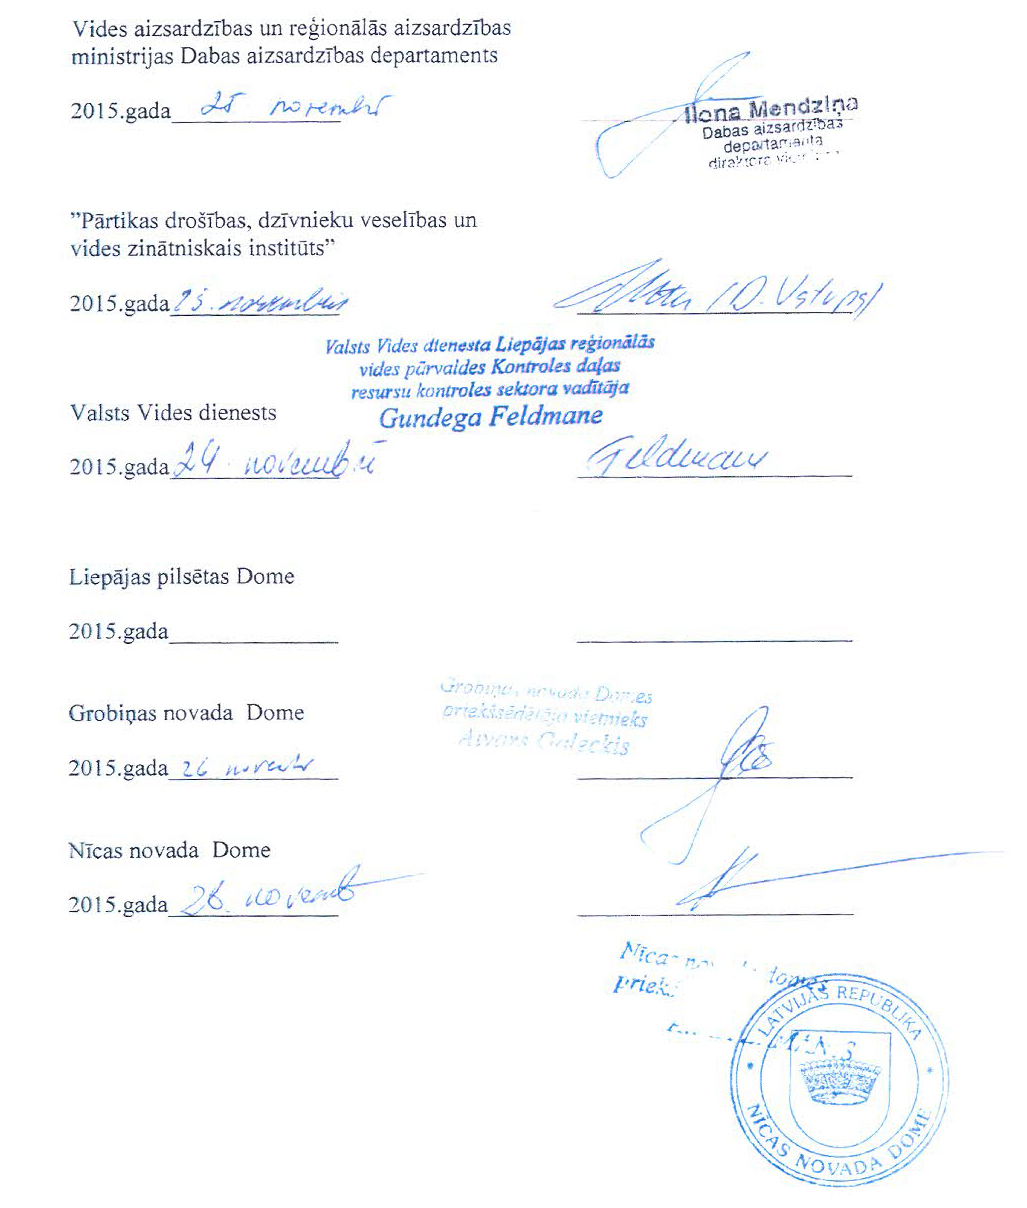 Vides aizsardzības un reģionālās aizsardzības
ministrijas Dabas aizsardzības departaments
2015.gada 25 novembrī
Ilona Mendziņa
Dabas aizsardzības
departamenta
direktora
"Pārtikas drošības, dzīvnieku veselības un
vides zinātniskais institūts"
2015.gada 25. novembris
Valsts Vides dienesta Liepājas reģionālās
vides pārvaldes Kontroles daļas
resursu kontroles sektora vadītāja
Gundega Feldmane
Valsts Vides dienests
2015.gada 24. novembrī
Feldmane
Liepājas pilsētas Dome
2015.gada
Grobiņas novada Domes
priekšsēdētāja vietnieks
Aivars Galeckis
Grobiņas novada Dome
2015.gada 26
Nīcas novada Dome
2015.gada 26.
domes
LATVIJAS REPUBLIKA
NĪCAS NOVADA DOME